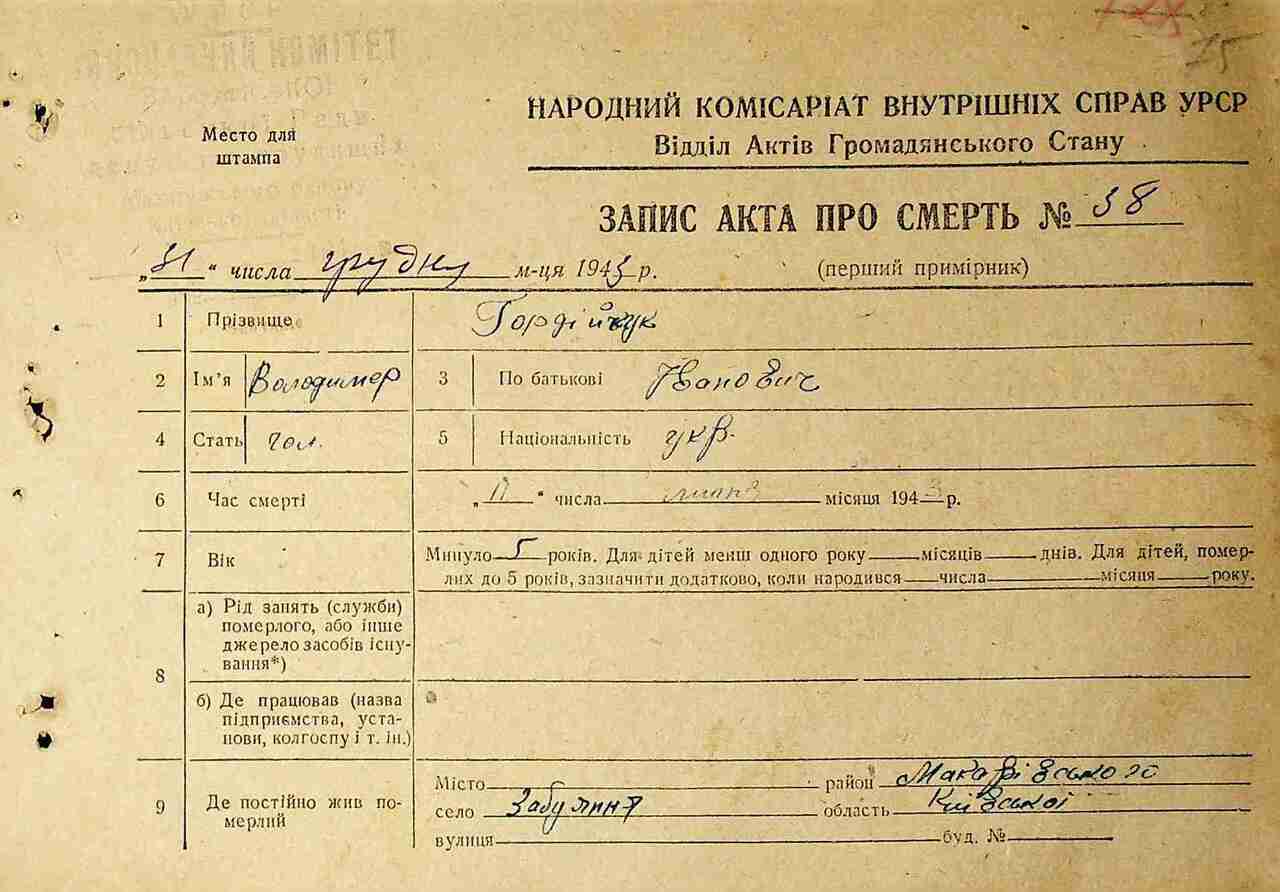 15
НАРОДНИЙ КОМІСАРІАТ ВНУТРІШНІХ СПРАВ УРСР
Відділ Актів Громадянського Стану
Место для
штампа
ЗАПИС АКТА ПРО СМЕРТЬ № 38
„31“ числа грудню м-ця 1943 р.
(перший примірник)
1 Прізвище Гордійчук
2 Ім'я Володимер 3 По батькові Іванович
4 Стать чол. 5 Національність укр.
6 Час смерті „11“ числа місяця 1943 р.
7 Вік Минуло 5 років. Для дітей менш одного року місяців днів. Для дітей, помер-
лих до 5 років, зазначити додатково, коли народився числа місяця року.
8 а) Рід занять (служби)
померлого, або інше
джерело засобів існу-
вання*)
б) Де працював (назва
підприємства, уста-
нови, колгоспу і т. ін.)
9 Де постійно жив по-
мерлий
Місто район Макарівського
село Забуяння область Київської
вулиця буд. №